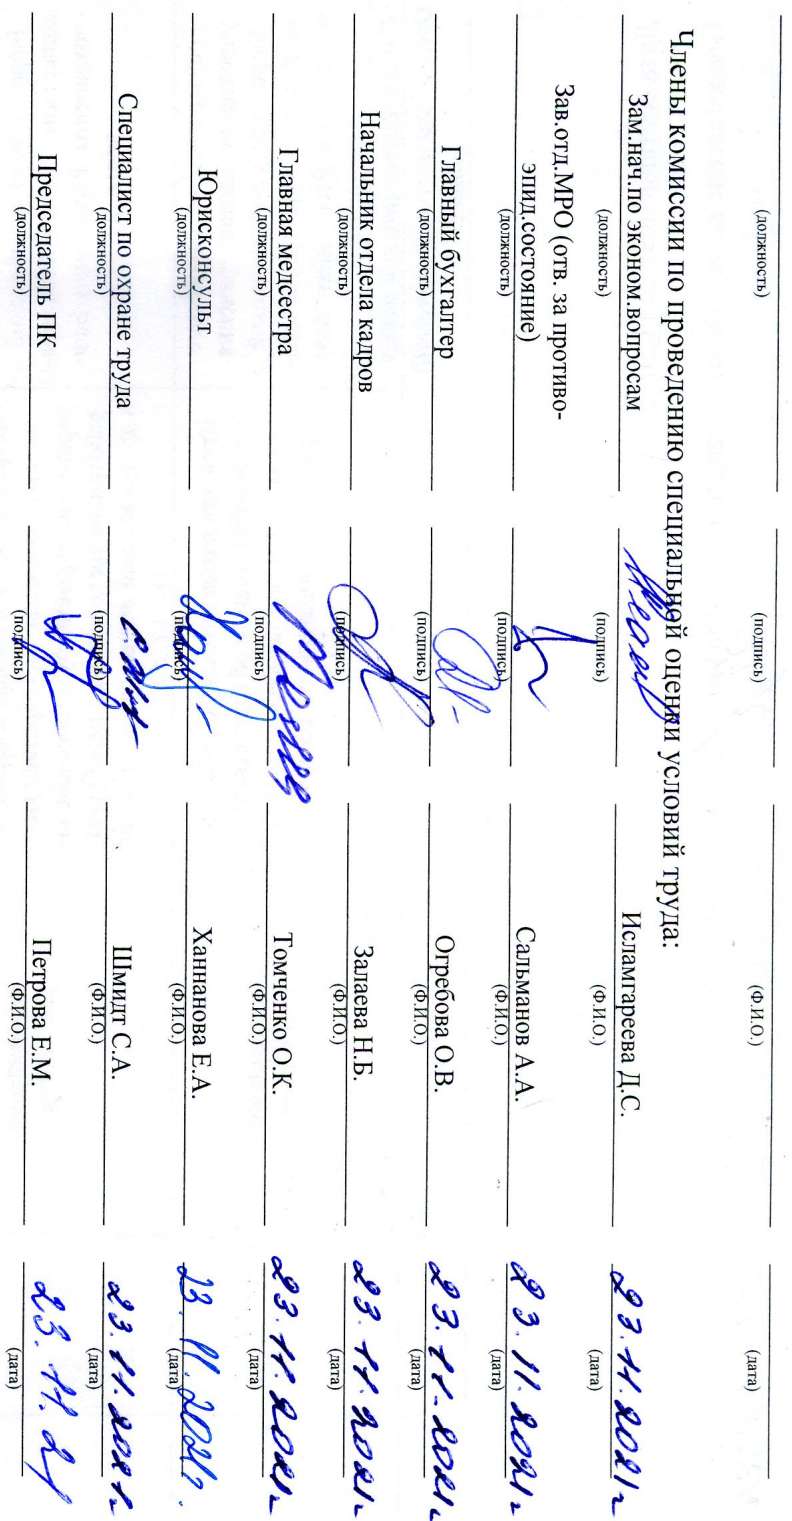 (должность) (подпись) (Ф.И.О.) (дата)
Члены комиссии по проведению специальной оценки условий труда:
Зам.нач.по эконом.вопросам Исламгареева Д.С. 23.11.2021г
(должность) (подпись) (Ф.И.О.) (дата)
Зав.отд.МРО (отв. за противо-
эпид.состояние) Сальманов А.А. 23.11.2021г
(должность) (подпись) (Ф.И.О.) (дата)
Главный бухгалтер Огребова О.В. 23.11.2021г
(должность) (подпись) (Ф.И.О.) (дата)
Начальник отдела кадров Залаева Н.Б. 23.11.2021г
(должность) (подпись) (Ф.И.О.) (дата)
Главная медсестра Томченко О.К. 23.11.2021г
(должность) (подпись) (Ф.И.О.) (дата)
Юрисконсульт Ханнанова Е.А. 23.11.2021г.
(должность) (подпись) (Ф.И.О.) (дата)
Специалист по охране труда Шмидт С.А. 23.11.2021г
(должность) (подпись) (Ф.И.О.) (дата)
Председатель ПК Петрова Е.М. 23.11.21
(должность) (подпись) (Ф.И.О.) (дата)